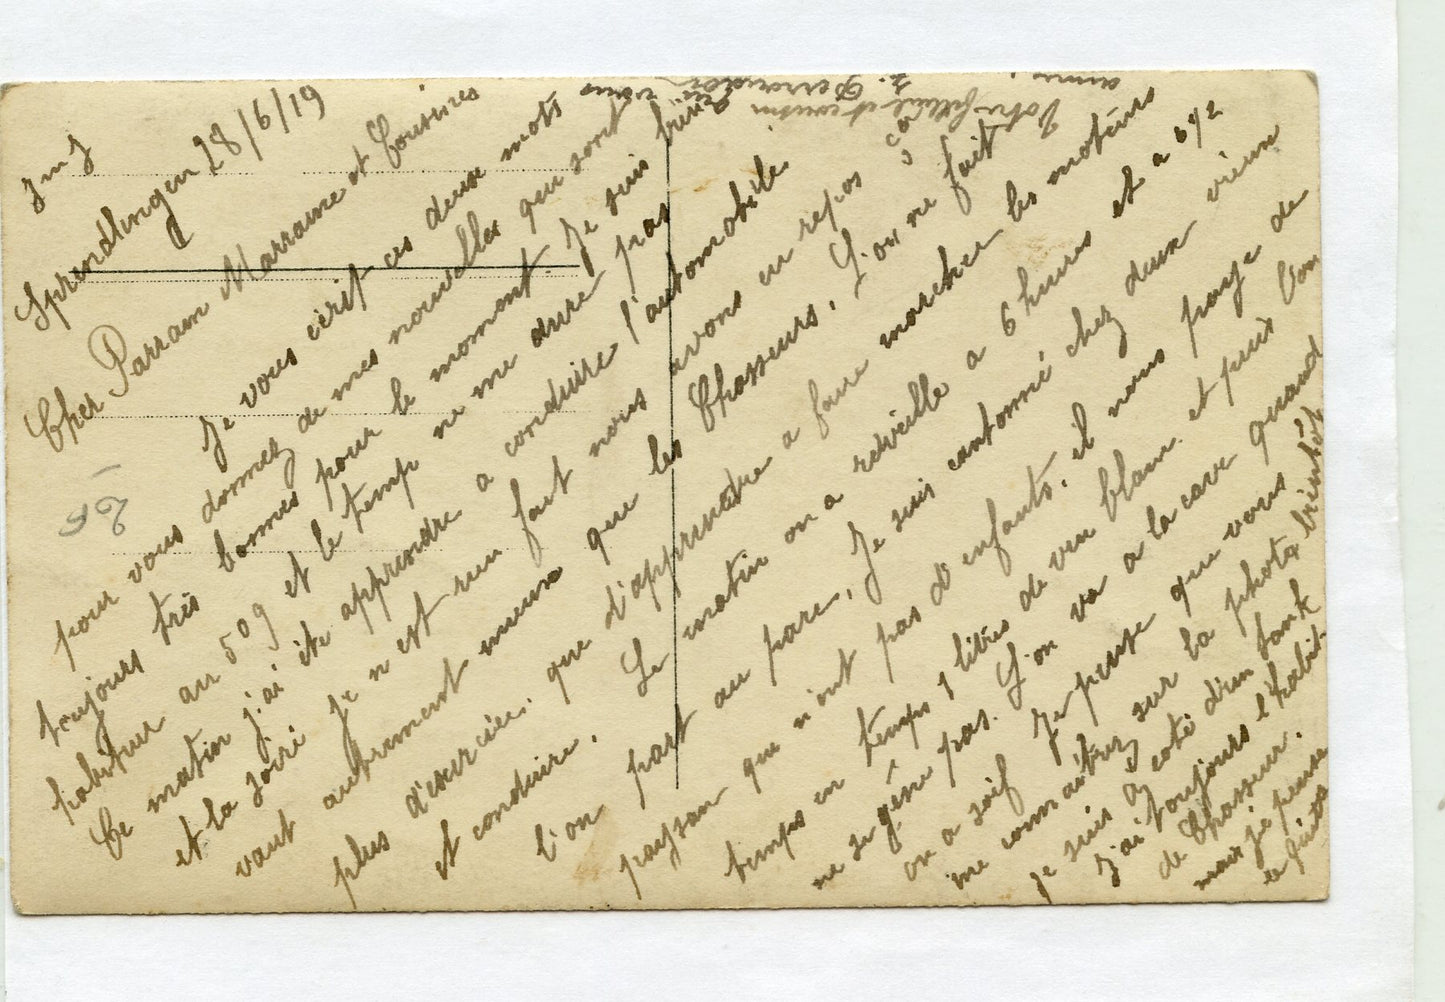 J m J
Sprendlingen 28/6/19
Cher Parrain Marraine et Cousines
Je vous écrit ces deux mots
pour vous donnez de mes nouvelles qui sont
toujours très bonnes pour le moment. Je suis bien
habituer au 509 et le temp ne me dure pas
Ce matin j'ai été apprendre a conduire l'automobile.
et la soiré je n est rien fait nous avons en repos car
vaut autrement mieux que les Chasseurs, L'on ne fait
plus d'exercice. que d'apprendre a faire marcher les moteurs
et conduire. Le matin on a réveille a 6 hures et a 6 1/2
l'on part au parc, Je suis cantonné chez deux vieux
paysan qui n'ont pas d'enfants, il nous paye de
temps en temps 1 litres de vin blanc et puis l'on
ne se gêne pas. L'on va a la cave quand
on a soif Je pense que vous
me connaitrez sur la photo
je suis à coté d'un tank
j'ai toujours l'habit
de Chasseur.
mais je pense
le quitté
bientôt
Votre filleul et cousin
qui vous
aime.